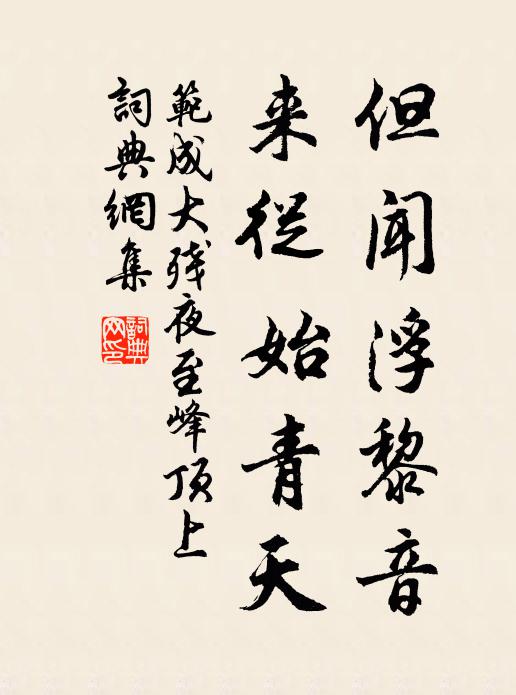 但闻浮黎音
来從始青天
範成大残夜至峰顶上
詞典網集
詞典网印